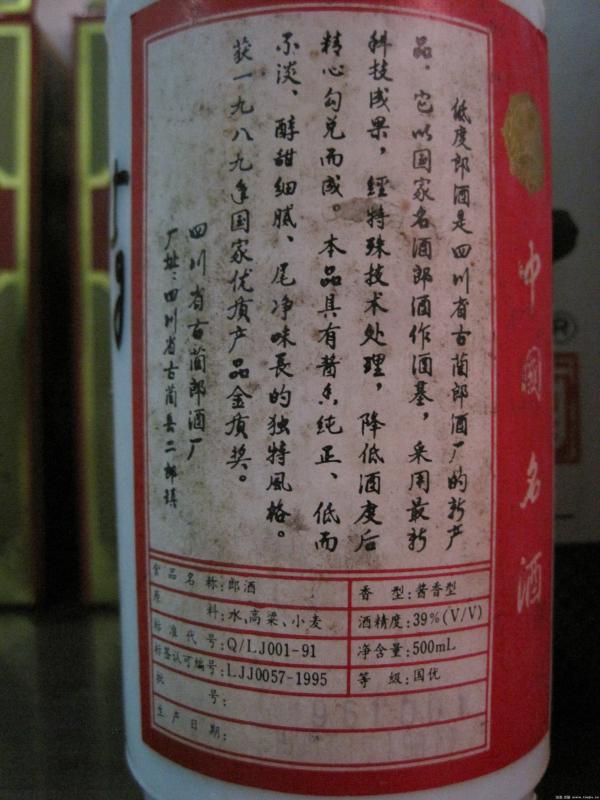 低度郎酒是四川省古蔺郎酒厂的新产
品。它以国家名酒郎酒作酒基，采用最新
科技成果，经特殊技术处理，降低酒度后
精心勾兑而成。本品具有酱香纯正、低而
不淡、醇甜细腻、尾净味長的独特風格。
获一九八九年国家优质产品金质奖。
四川省古蔺郎酒厂
厂址：四川省古蔺县二郎镇
食品名称：郎酒
香型：酱香型
原料：水、高粱、小麦
酒精度：39%(V/V)
标准代号：Q/LJ001-91
净含量：500mL
标签认可编号：LJJ0057-1995
等级：国优
批号：
生产日期：
中國名酒